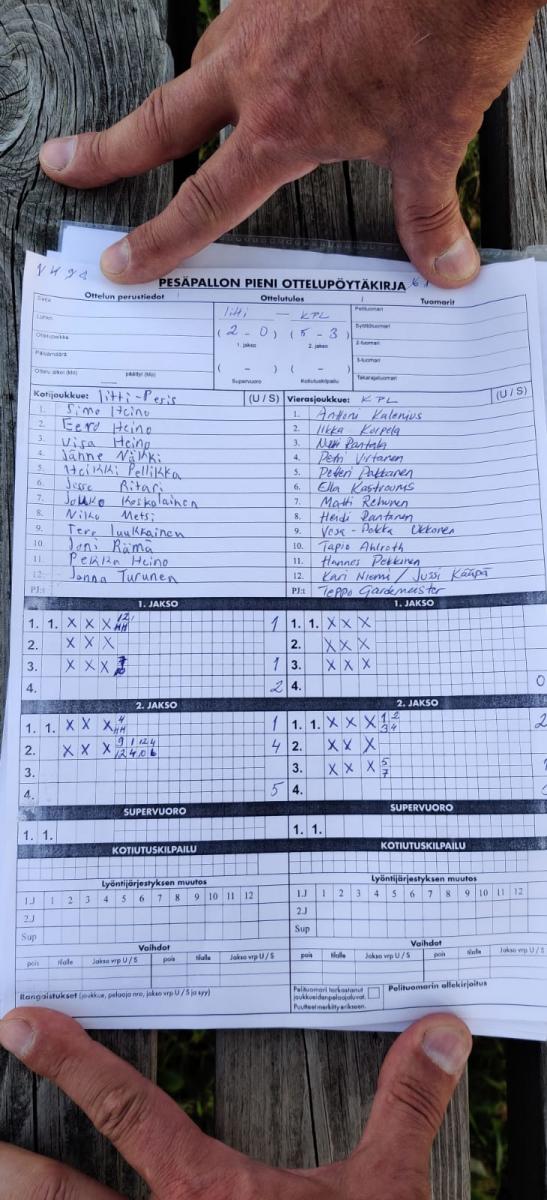 PESÄPALLON PIENI OTTELUPÖYTÄKIRJA
Ottelun perustiedot
Ottelutulos
Tuomarit
Sarja
Iitti — KPL
Pelituomari
Lohko
(2 - 0) (5 - 3)
Syöttötuomari
1. jakso 2. jakso
Ottelupaikka
2-tuomari
Päivämäärä
( - ) ( - )
3-tuomari
Ottelu alkoi (klo) päättyi (klo)
Supervuoro Kotiutuskilpailu
Takarajatuomari
Kotijoukkue: Iitti-Pesis (U / S)
1. Simo Heino
2. Eero Heino
3. Visa Heino
4. Janne Näkki
5. Heikki Pellikka
6. Jesse Ritari
7. Jouko Koskolainen
8. Niko Metsi
9. Tero Luukkainen
10. Joni Rämä
11. Pekka Heino
12. Janna Turunen
PJ:t
Vierasjoukkue: KPL (U / S)
1. Anttoni Kalenius
2. Iikka Korpela
3. Rantala
4. Petri Virtanen
5. Petteri Pakkanen
6. Ella
7. Matti Rehunen
8. Heidi Rantanen
9. Vesa-Pekka Okkonen
10. Tapio Ahlroth
11. Hannes Pekkinen
12. Kari Niemi / Jussi Kääpä
PJ:t Teppo Gardemeister
1. JAKSO
1. 1. X X X 1
2. X X X
3. X X X 1
4. 2
1. JAKSO
1. 1. X X X
2. X X X
3. X X X
4. 0
2. JAKSO
1. 1. X X X 4 1
2. X X X 4
3.
4. 5
2. JAKSO
1. 1. X X X 1 2 3 4 2
2. X X X
3. X X X 5 7
4.
SUPERVUORO
1. 1.
SUPERVUORO
1. 1.
KOTIUTUSKILPAILU
KOTIUTUSKILPAILU
Lyöntijärjestyksen muutos
1.J 1 2 3 4 5 6 7 8 9 10 11 12
2.J
Sup
Lyöntijärjestyksen muutos
1.J 1 2 3 4 5 6 7 8 9 10 11 12
2.J
Sup
Vaihdot
pois tilalle Jakso vrp U / S pois tilalle Jakso vrp U / S
Vaihdot
pois tilalle Jakso vrp U / S pois tilalle Jakso vrp U / S
Rangaistukset (joukkue, pelaaja nro, jakso vrp U / S ja syy)
Pelituomari tarkastanut
joukkueiden pelaajaluvat.
Puutteet merkitty erikseen.
Pelituomarin allekirjoitus